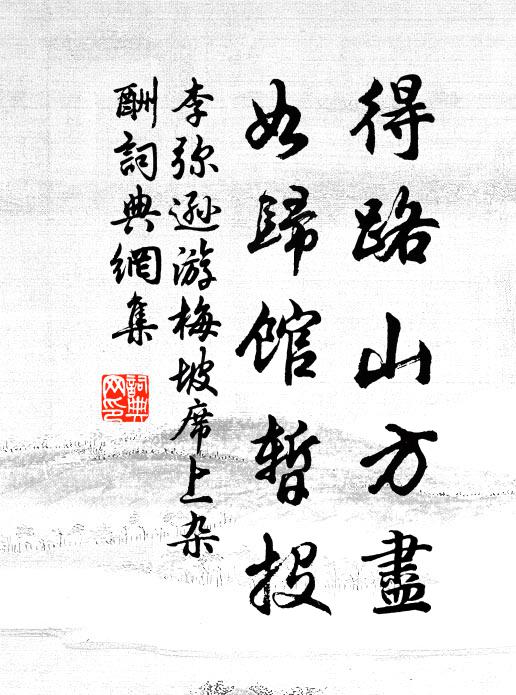 得路山方盡
如歸館暫投
李弥遜游梅坡席上杂
酬詞典網集
詞典
网印